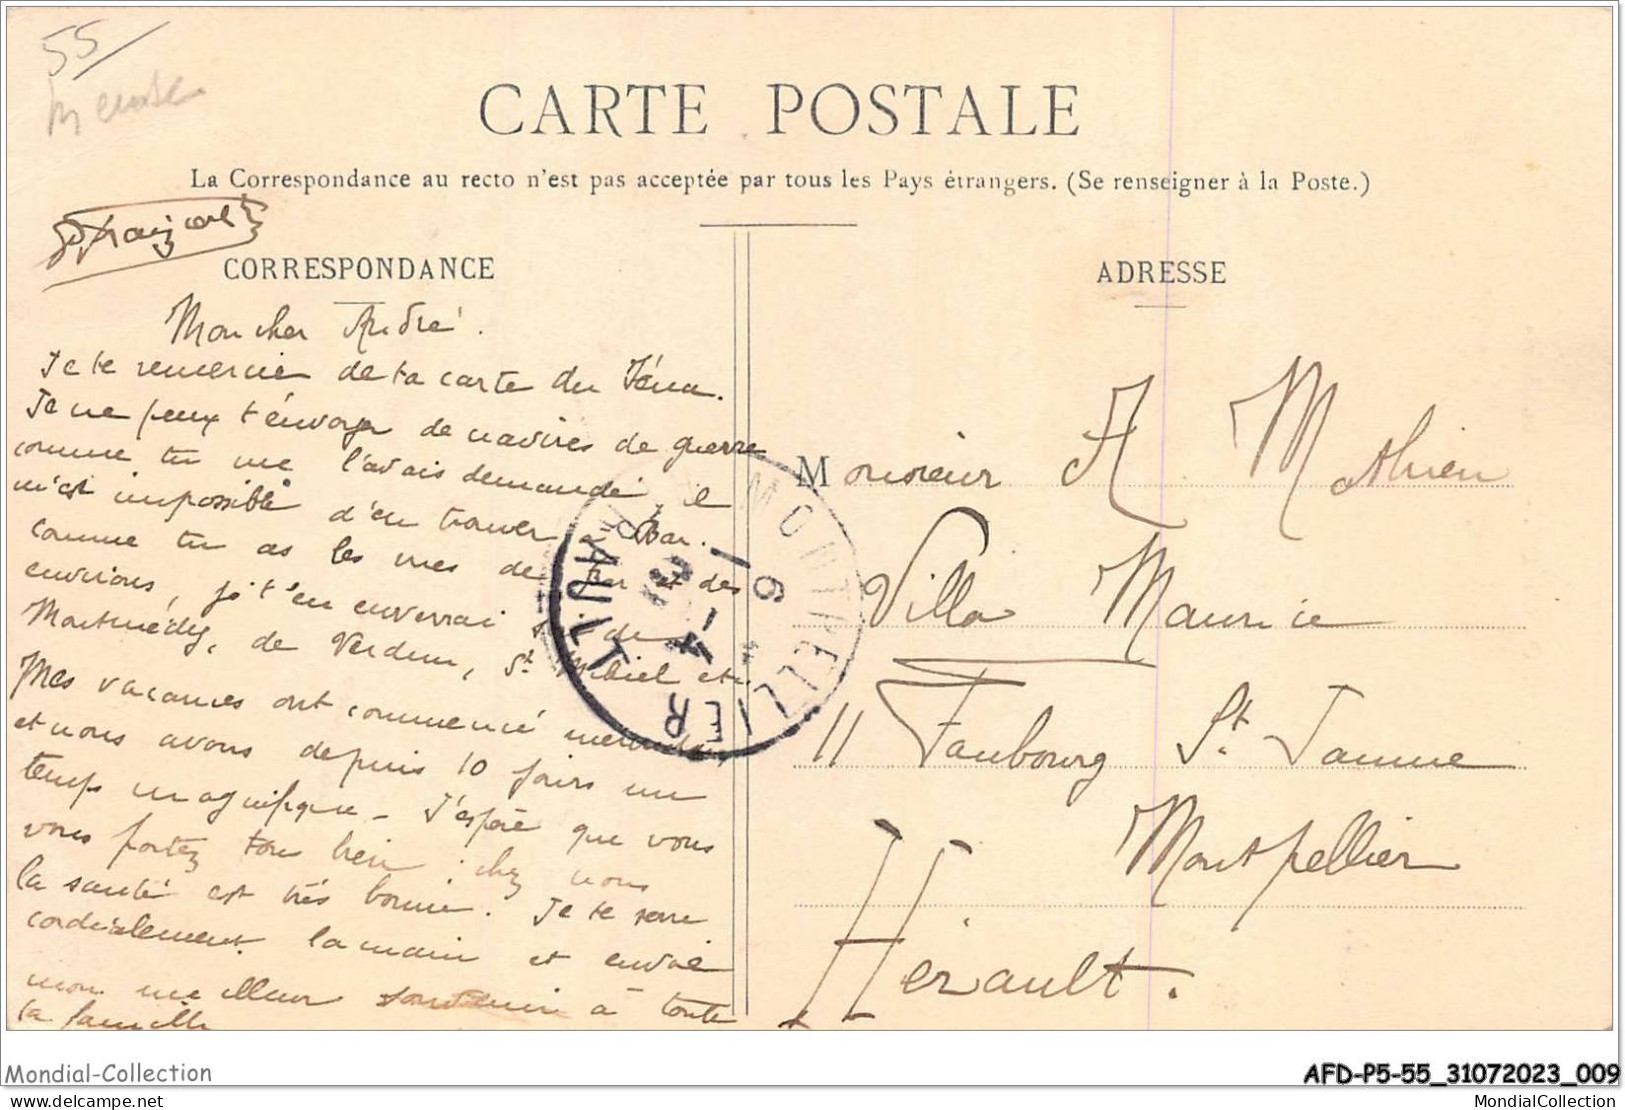 55
Meuse
CARTE POSTALE
La Correspondance au recto n'est pas acceptée par tous les Pays étrangers. (Se renseigner à la Poste.)
CORRESPONDANCE
Mon cher André.
Je te remercie de ta carte du Iéna.
Je ne peux t'envoyer de navires de guerre
comme tu me l'avais demandé, il
m'est impossible d'en trouver à Bar.
comme tu as les vues de Bar et des
environs, je t'en enverrai de
Montmédy, de Verdun, St Mihiel etc.
Mes vacances ont commencé mercredi
et nous avons depuis 10 jours un
temps magnifique - J'espère que vous
vous portez tous bien ; chez nous
la santé est très bonne. Je te serre
cordialement la main et envoie
mon meilleur souvenir à toute
ta famille
ADRESSE
Monsieur A Mathieu
Villa Maurice
11 Faubourg St. Jaume
Montpellier
Hérault.
MONTPELLIER
HERAULT
6 - 4
Mondial-Collection
AFD-P5-55_31072023_009
delcampe.net
MondialCollection